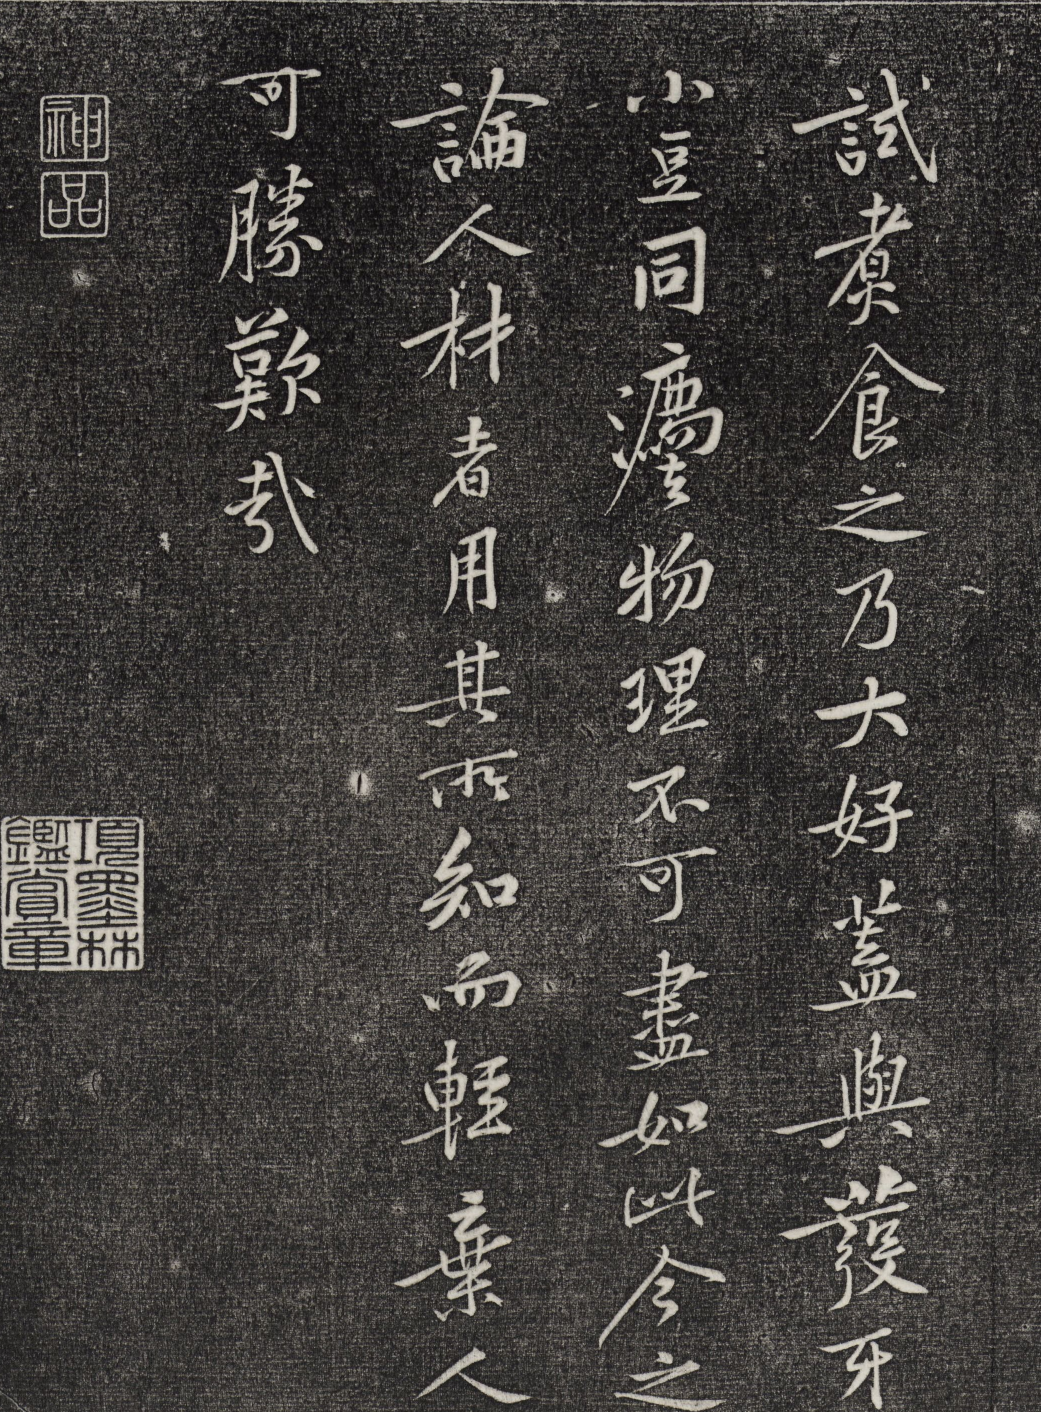 試煮食之乃大好蓋與發牙
小豆同灋物理不可盡如此今之
論人材者用其所知而輕棄人
可勝歎哉
神品
項墨林
鑑賞章